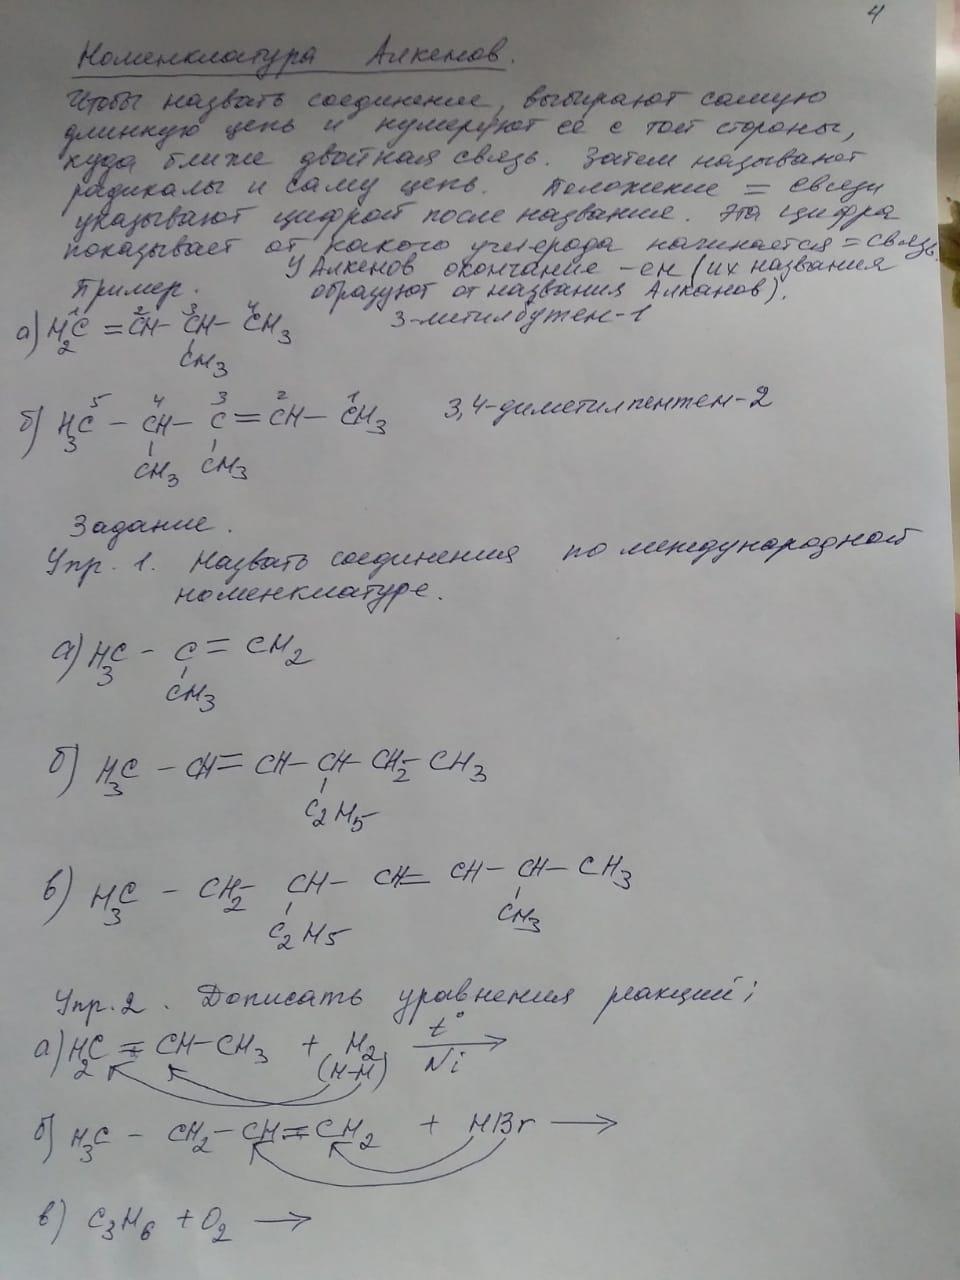 4
Номенклатура Алкенов.
Чтобы назвать соединение, выбирают самую
длинную цепь и нумеруют её с той стороны,
куда ближе двойная связь. Затем называют
радикалы и саму цепь. Положение = связи
указывают цифрой после названия. Эта цифра
показывает от какого углерода начинается = связь.
У Алкенов окончание -ен (их названия
Пример. образуют от названия Алканов).
1 2 3 4
а) H2C = CH - CH - CH3 3-метилбутен-1
CH3
5 4 3 2 1
б) H3C - CH - C = CH - CH3 3,4-диметилпентен-2
CH3 CH3
Задание.
Упр. 1. Назвать соединения по международной
номенклатуре.
а) H3C - C = CH2
CH3
б) H3C - CH = CH - CH - CH2 - CH3
C2H5
в) H3C - CH2 - CH - CH = CH - CH - CH3
C2H5 CH3
Упр. 2. Дописать уравнения реакций:
а) H2C = CH - CH3 + H2 t° Ni →
(H-H)
б) H3C - CH2 - CH = CH2 + HBr →
в) C3H6 + O2 →